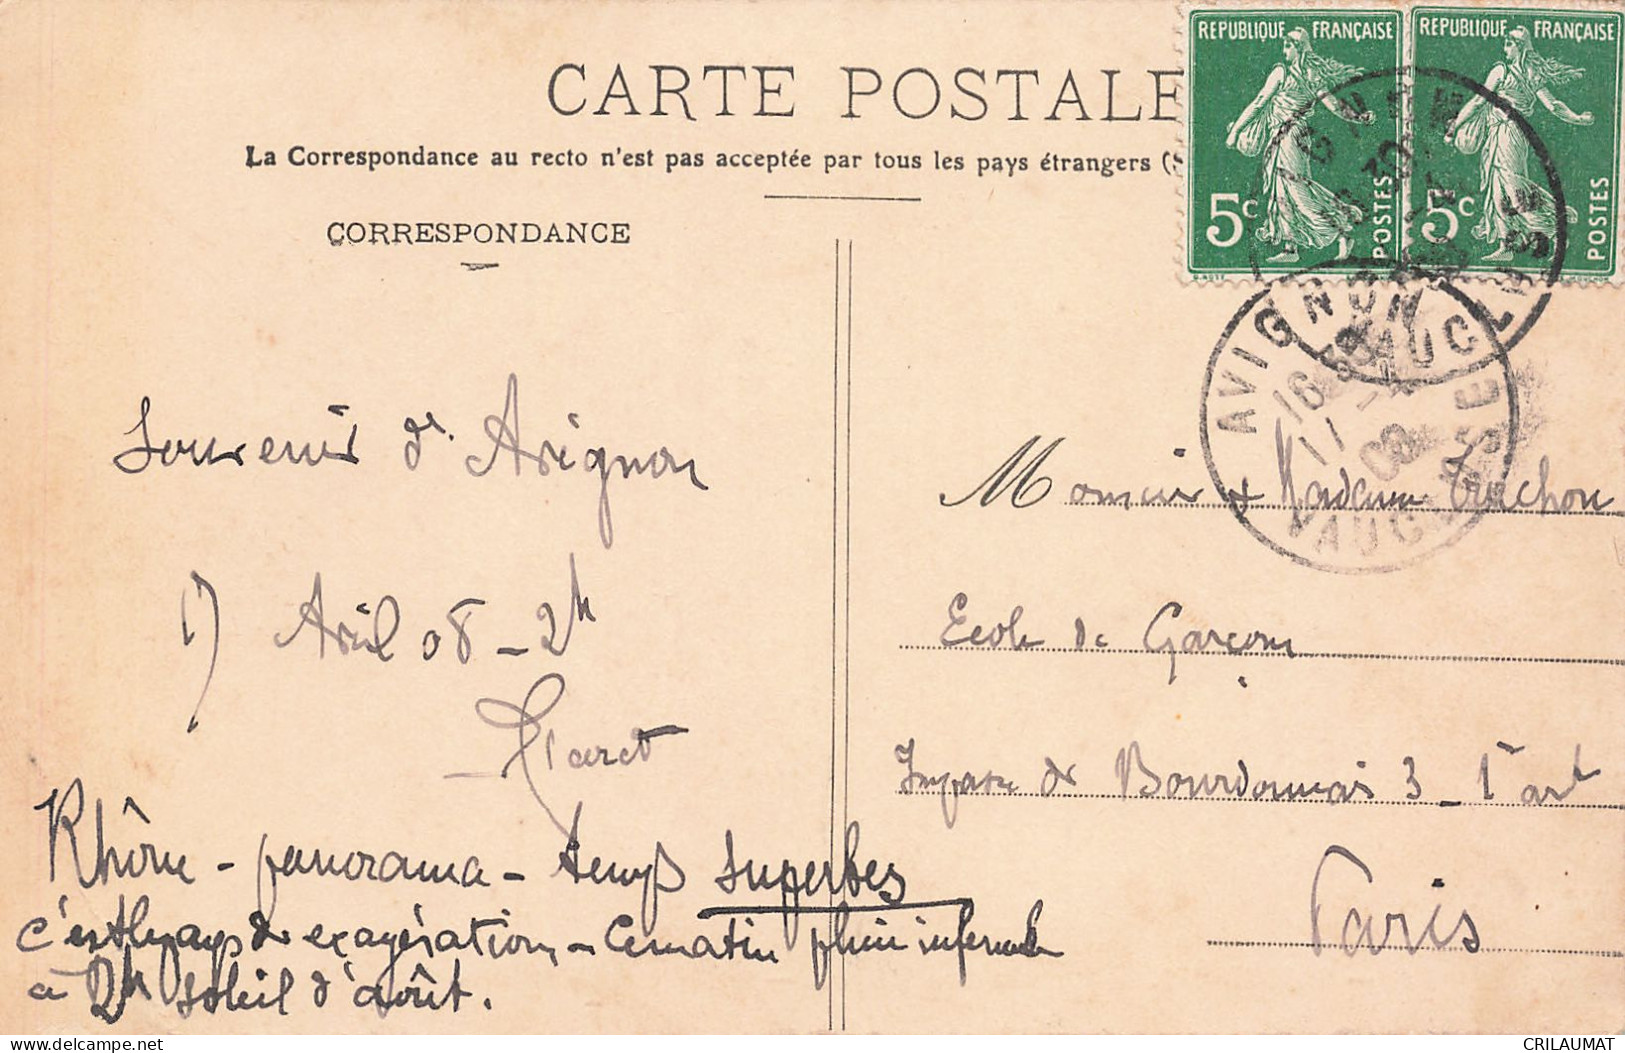 CARTE POSTALE
La Correspondance au recto n'est pas acceptée par tous les pays étrangers (
CORRESPONDANCE
REPUBLIQUE FRANÇAISE
5c POSTES
REPUBLIQUE FRANÇAISE
5c POSTES
AVIGNON
16 30
VAUCLUSE
AVIGNON
16
VAUCLUSE
Souvenir d'Avignon
17 Avril 08 - 2h
Rhône - panorama - temps superbes
c'est le pays de exagérations - Ce matin pluie infernale
à 2h soleil d'août.
Monsieur & Madame Truchon
Ecole de Garçons
Impasse de Bourdonnais 3 - 1er art
Paris
delcampe.net
CRILAUMAT